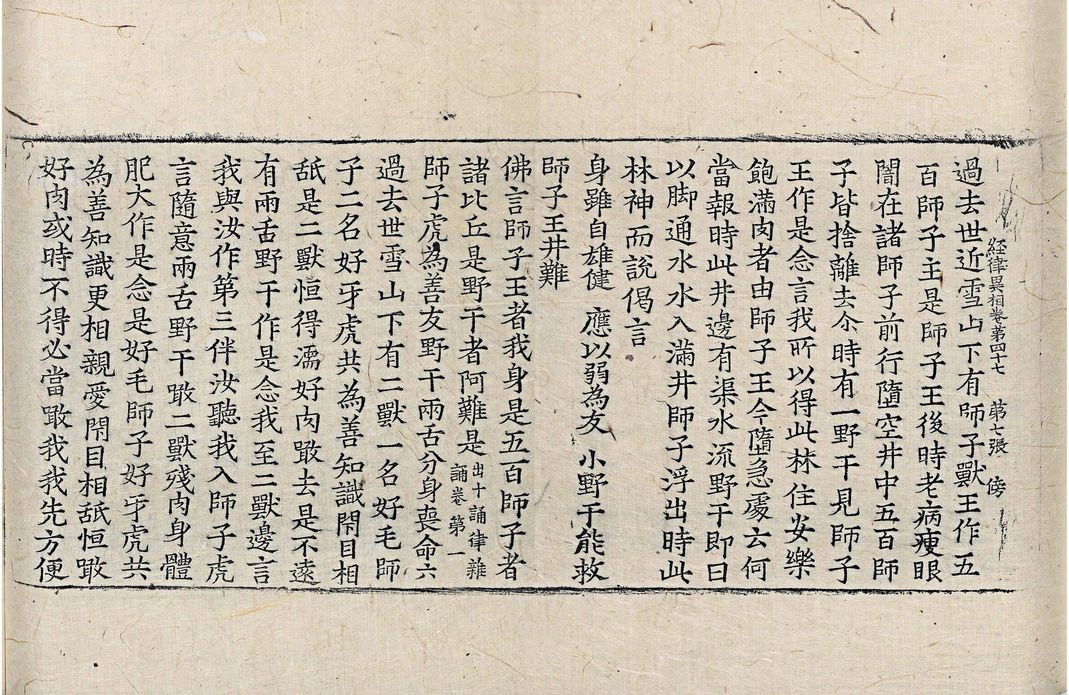 經律異相卷第四十七 第七張 傍
過去世近雪山下有師子獸王作五
百師子主是師子王後時老病瘦眼
闇在諸師子前行墮空井中五百師
子皆捨離去尒時有一野干見師子
王作是念言我所以得此林住安樂
飽滿肉者由師子王今墮急處云何
當報時此井邊有渠水流野干即曰
以脚通水水入滿井師子浮出時此
林神而說偈言
身雖自雄健 應以弱為友 小野干能救
師子王井難
佛言師子王者我身是五百師子者
諸比丘是野干者阿難是出十誦律雜誦卷第一
師子虎為善友野干兩舌分身喪命六
過去世雪山下有二獸一名好毛師
子二名好牙虎共為善知識閇目相
舐是二獸恒得濡好肉噉去是不遠
有兩舌野干作是念我至二獸邊言
我與汝作第三伴汝聽我入師子虎
言隨意兩舌野干噉二獸殘肉身體
肥大作是念是好毛師子好牙虎共
為善知識更相親愛閇目相舐恒噉
好肉或時不得必當噉我我先方便